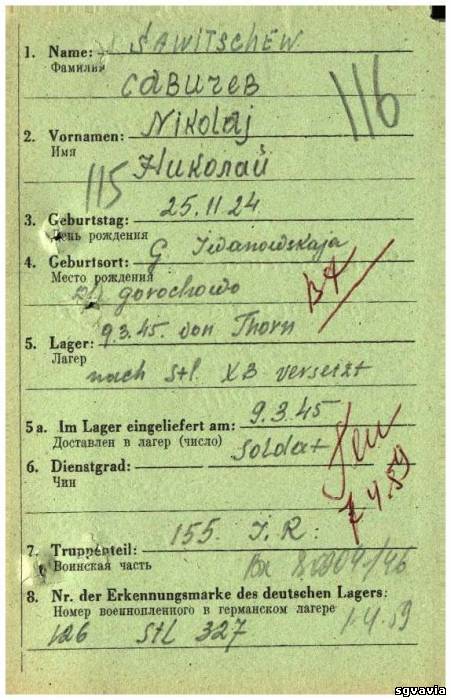 1. Name: SAWITSCHEW
Фамилия
Савичев
116
2. Vornamen: Nikolaj
Имя
Николай
115
3. Geburtstag: 25.11.24
День рождения
4. Geburtsort: G. Iwanowskaja
Место рождения
gorochowo
5. Lager: 9.3.45. von Thorn
Лагер
nach Stl. XB versetzt
5a. Im Lager eingeliefert am: 9.3.45
Доставлен в лагер (число)
6. Dienstgrad: Soldat
Чин
4.59
7. Truppenteil: 155. I.R.
Воинская часть
8. Nr. der Erkennungsmarke des deutschen Lagers:
Номер военнопленного в германском лагере
126 Stl 327
1.4.59
sgvavia